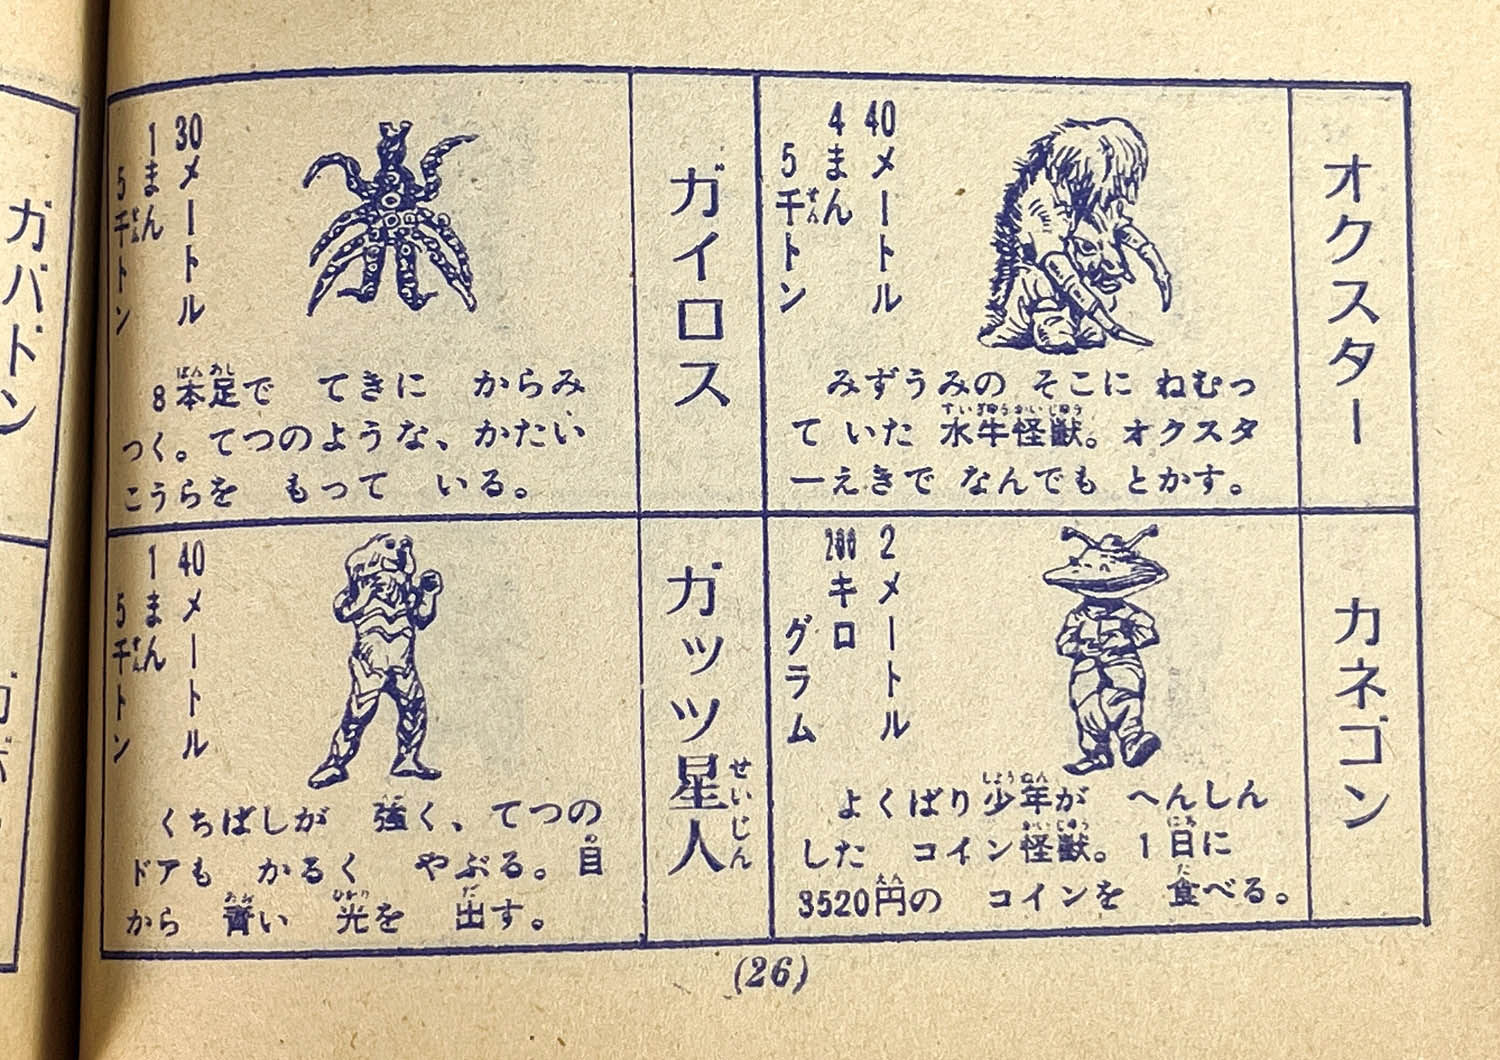 オクスター
40メートル
4まん
5千トン
せん
みずうみの そこに ねむっ
すいぎゅうかいじゅう
て いた 水牛怪獣。オクスタ
ーえきで なんでも とかす。
カネゴン
2メートル
200キロ
グラム
しょうねん
よくばり少年が へんしん
かいじゅう
にち
した コイン怪獣。1日に
えん
た
3520円の コインを 食べる。
ガイロス
30メートル
1まん
5千トン
せん
ほんあし
8本足で てきに からみ
つく。てつのような、かたい
こうらを もって いる。
ガッツ星人
せいじん
40メートル
1まん
5千トン
せん
くちばしが 強く、てつの
め
ドアも かるく やぶる。目
あお
ひかり
だ
から 青い 光を 出す。
(26)
ガバドン